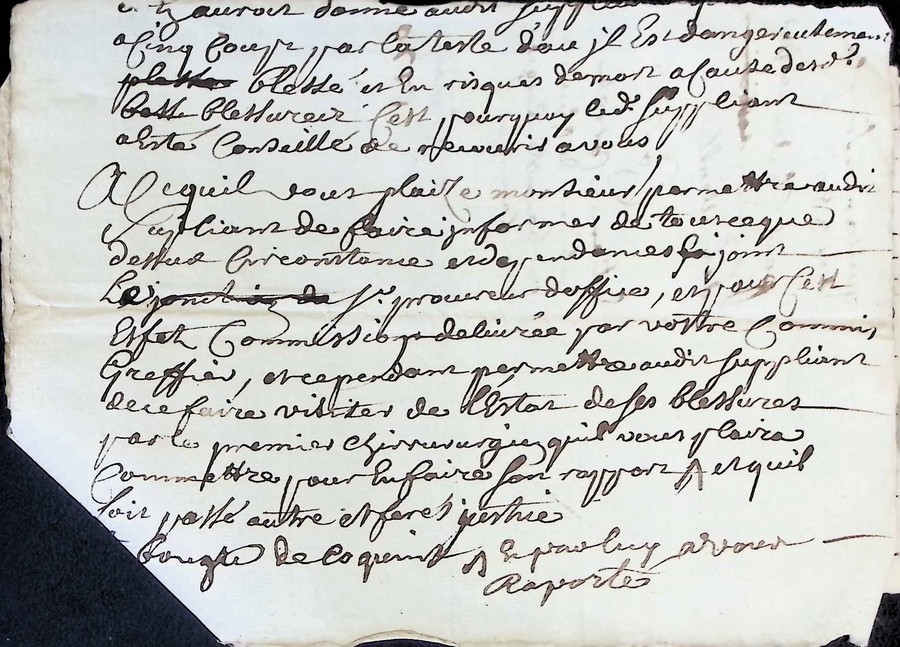 auroit donné audit suppliant
a Cinq Coups par la teste dou jl Est dangereusement
blessé et En risques de mort a Cause desd.
blessures Cest pourquoy led. suppliant
a Esté Conseillé de recourir a vous
A Ce quil vous plaize monsieur permettre audit
supliant de faire jnformer de tout ce que
dessus Circonstance et dependances joint
Le Sr. procureur doffice, et pour Cest
Effet Commission delivrée par votre Commis
Greffier, et cependant permettre audit suppliant
de ce faire visiter de lEstat de ses blessures
par le premier Chirurugien quil vous plaira
Commettre pour En faire son rapport et quil
soit passé outre et feres justice
de Coquin Le par luy a vous
Raporté